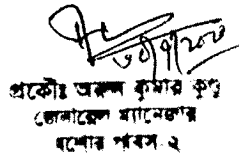 প্রকৌঃ অরুন কুমার কুন্ডু
জেনারেল ম্যানেজার
যশোর পবিস-২